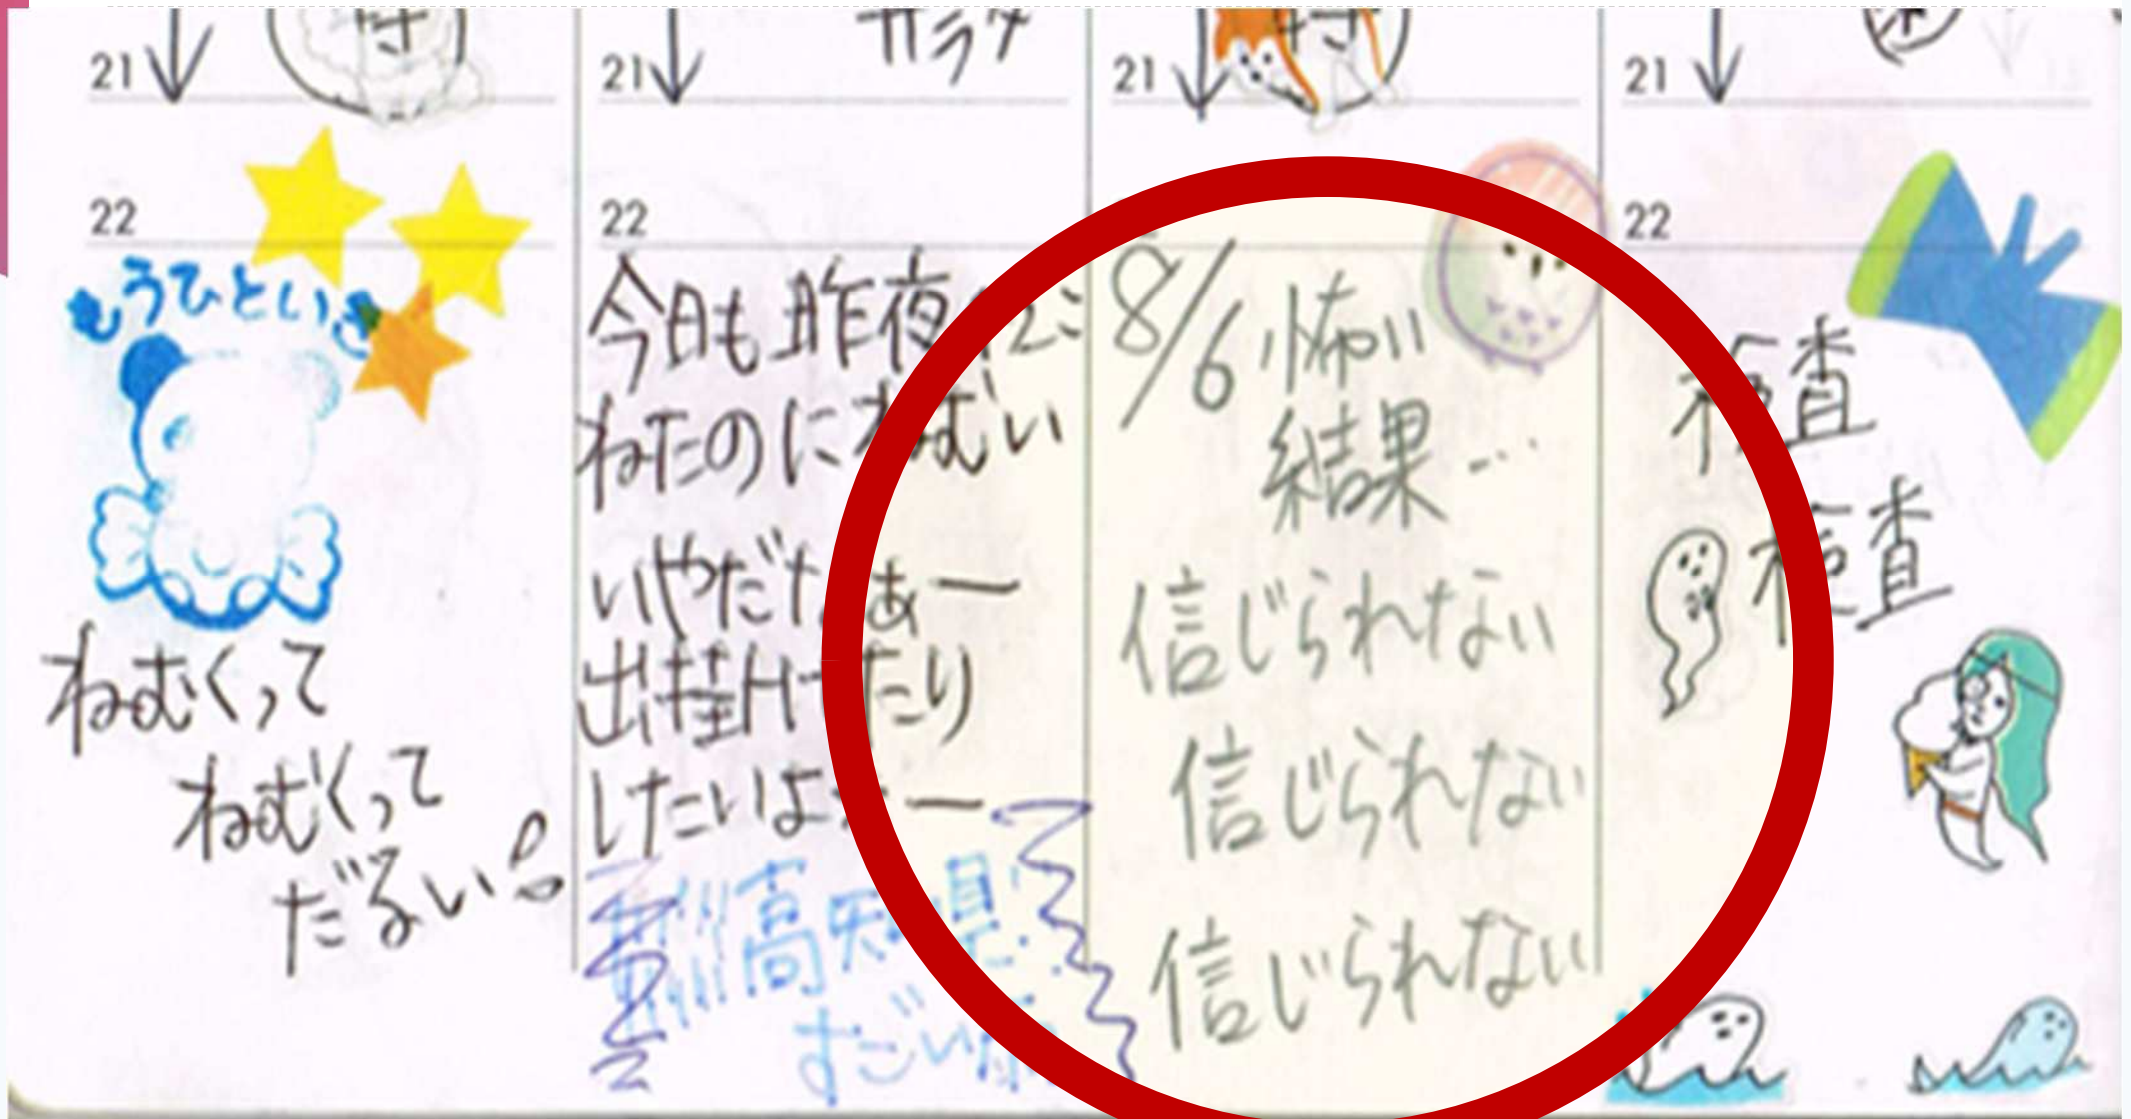 21
22
もうひといき
ねむくって
ねむくって
だるい
サラダ
21
22
今日も昨夜
ねたのにねむい
いやだなぁー
出掛けたり
したいよ ー
高知県
すごい
21
8/6 怖い
結果…
信じられない
信じられない
信じられない
21
22
検査
検査